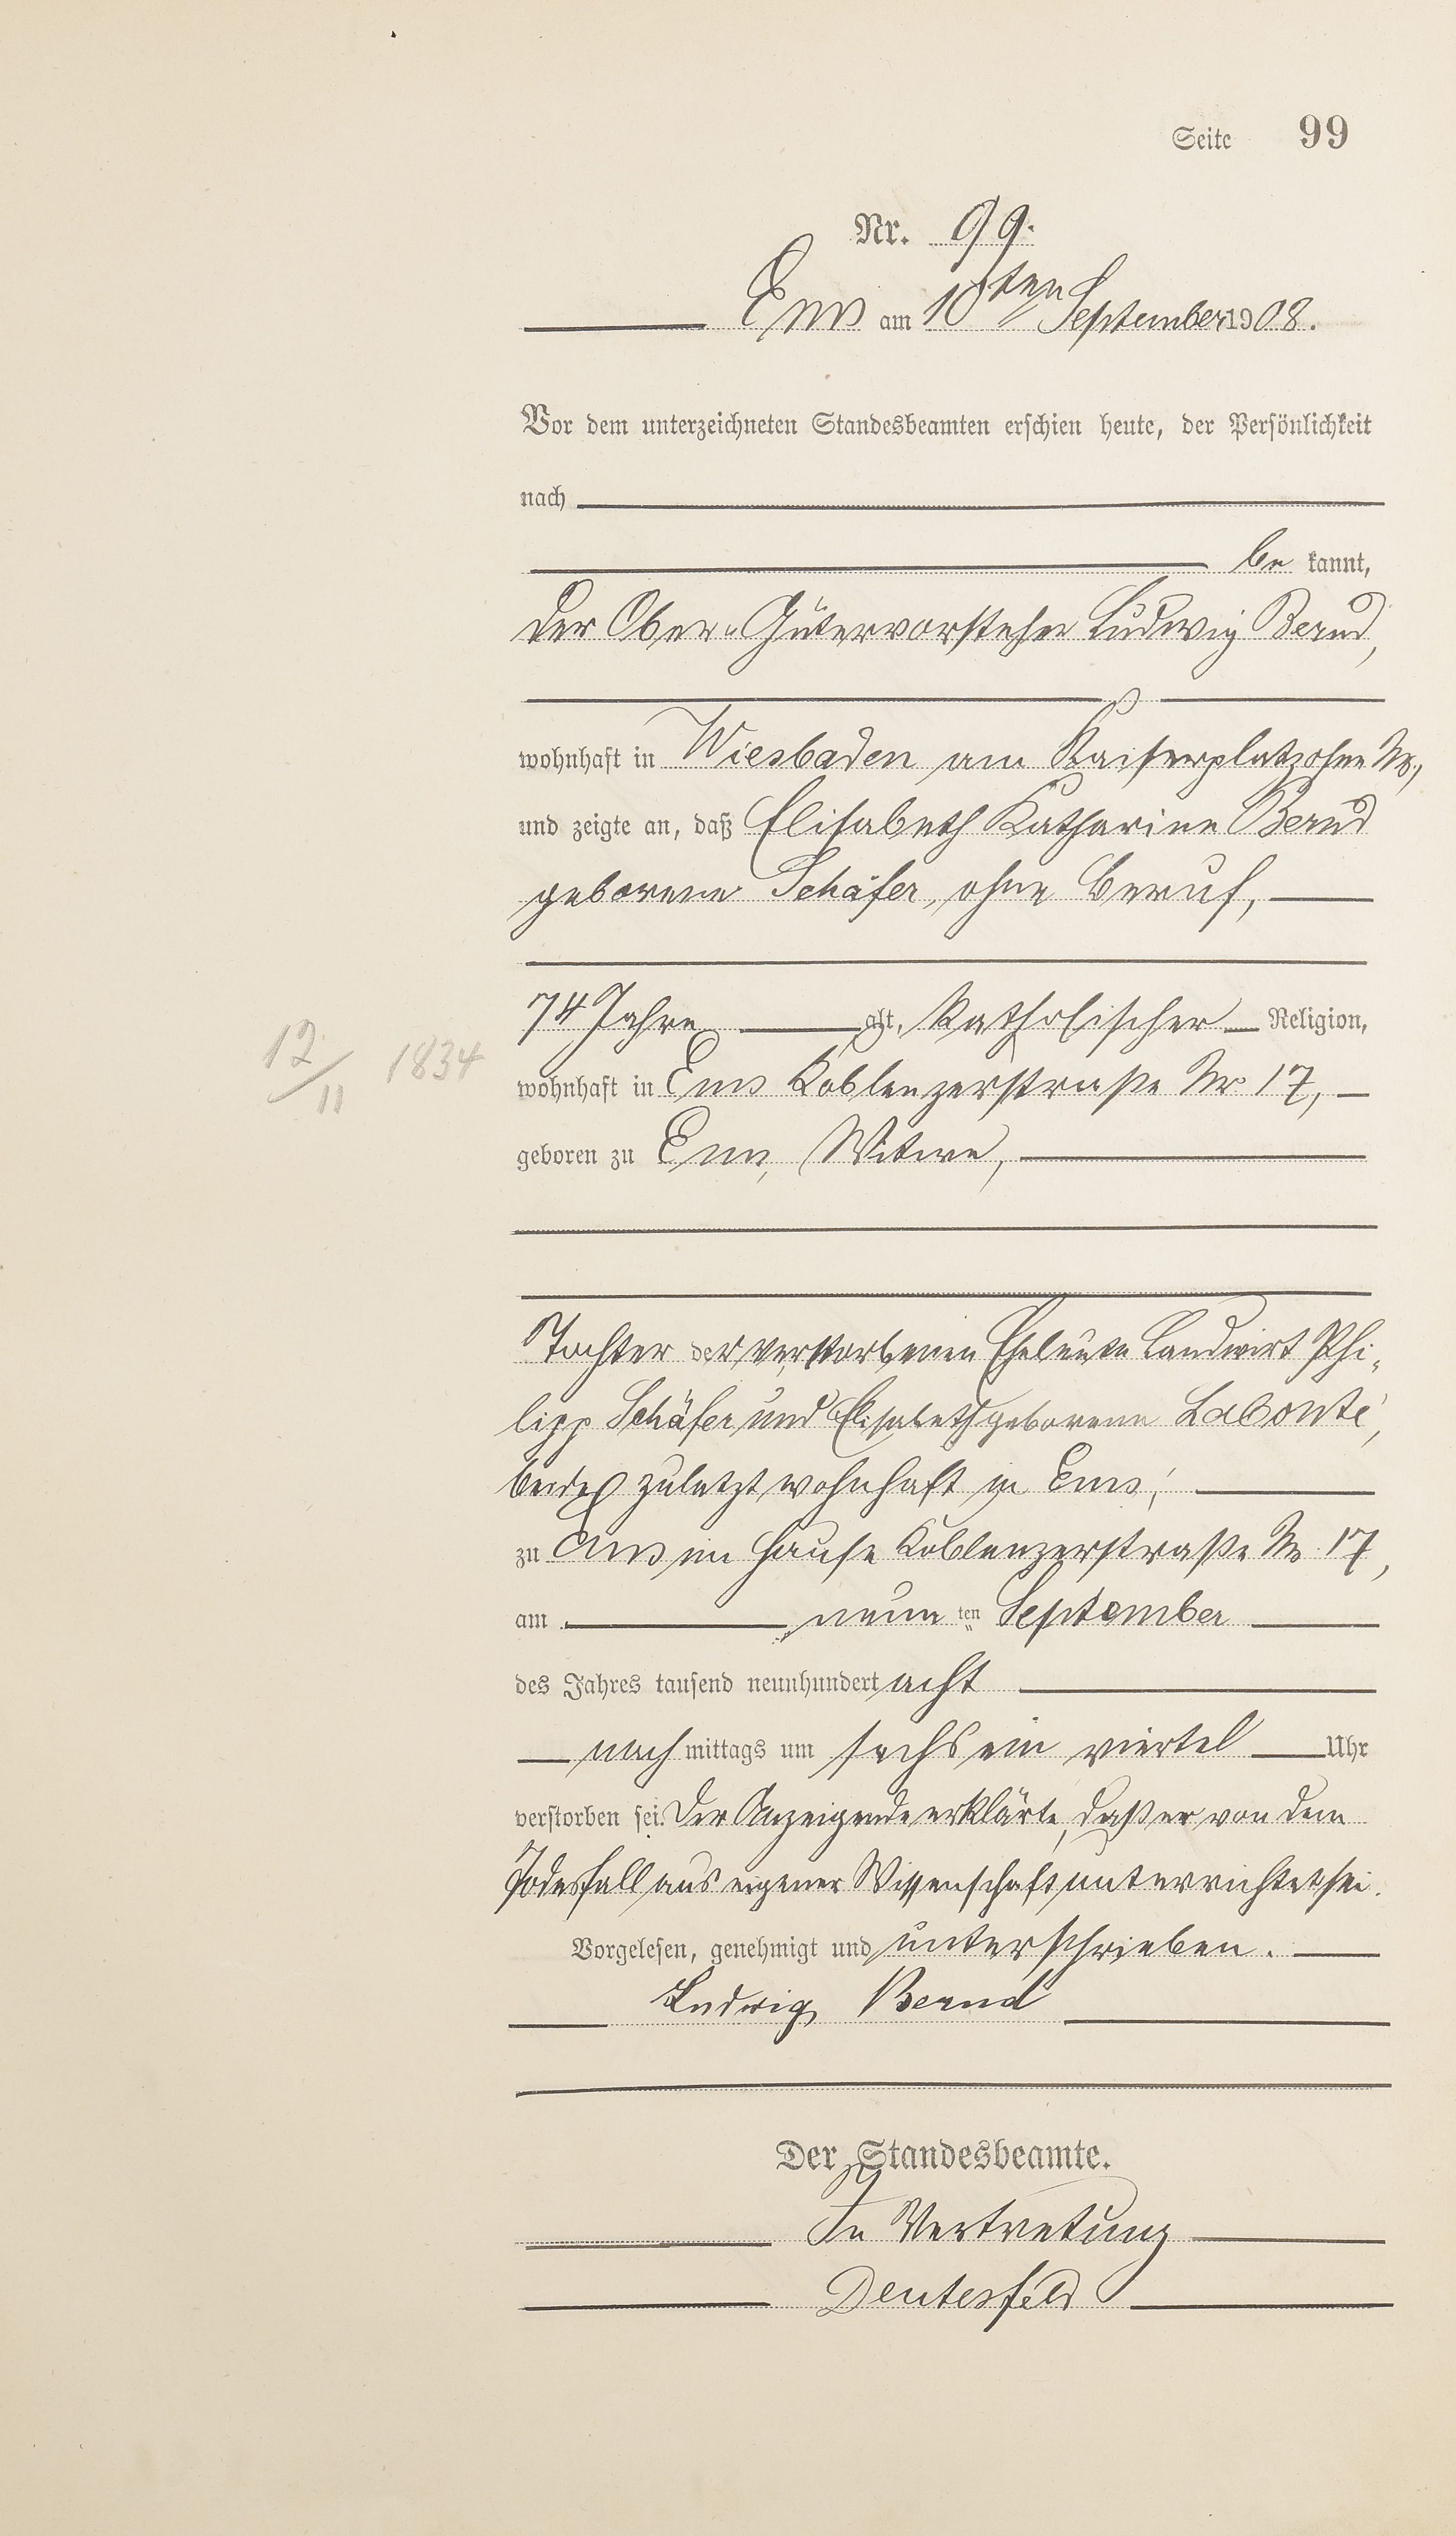 Seite 99
Nr. 99.
Ems am 10ten September 1908.
Vor dem unterzeichneten Standesbeamten erschien heute, der Persönlichkeit
nach
be kannt,
der Ober-Gütervorsteher Ludwig Bernd,
wohnhaft in Wiesbaden am Kaiserplatz ohne Nr,
und zeigte an, daß Elisabeth Katharine Bernd
geborene Schäfer, ohne Beruf,
74 Jahre alt, katholischer Religion,
12/11 1834
wohnhaft in Ems Koblenzerstraße Nr. 17,
geboren zu Ems, Witwe,
Tochter der verstorbenen Eheleute Landwirt Phi-
lipp Schäfer und Elisabeth geborene Labonté,
beide zuletzt wohnhaft in Ems,
zu Ems im Hause Koblenzerstraße Nr. 17,
am neun ten September
des Jahres tausend neunhundert acht
nach mittags um sechs ein viertel Uhr
verstorben sei. Der Anzeigende erklärte, daß er von dem
Todesfall aus eigener Wissenschaft unterrichtet sei.
Vorgelesen, genehmigt und unterschrieben.
Ludwig Bernd
Der Standesbeamte.
In Vertretung
Deutesfeld